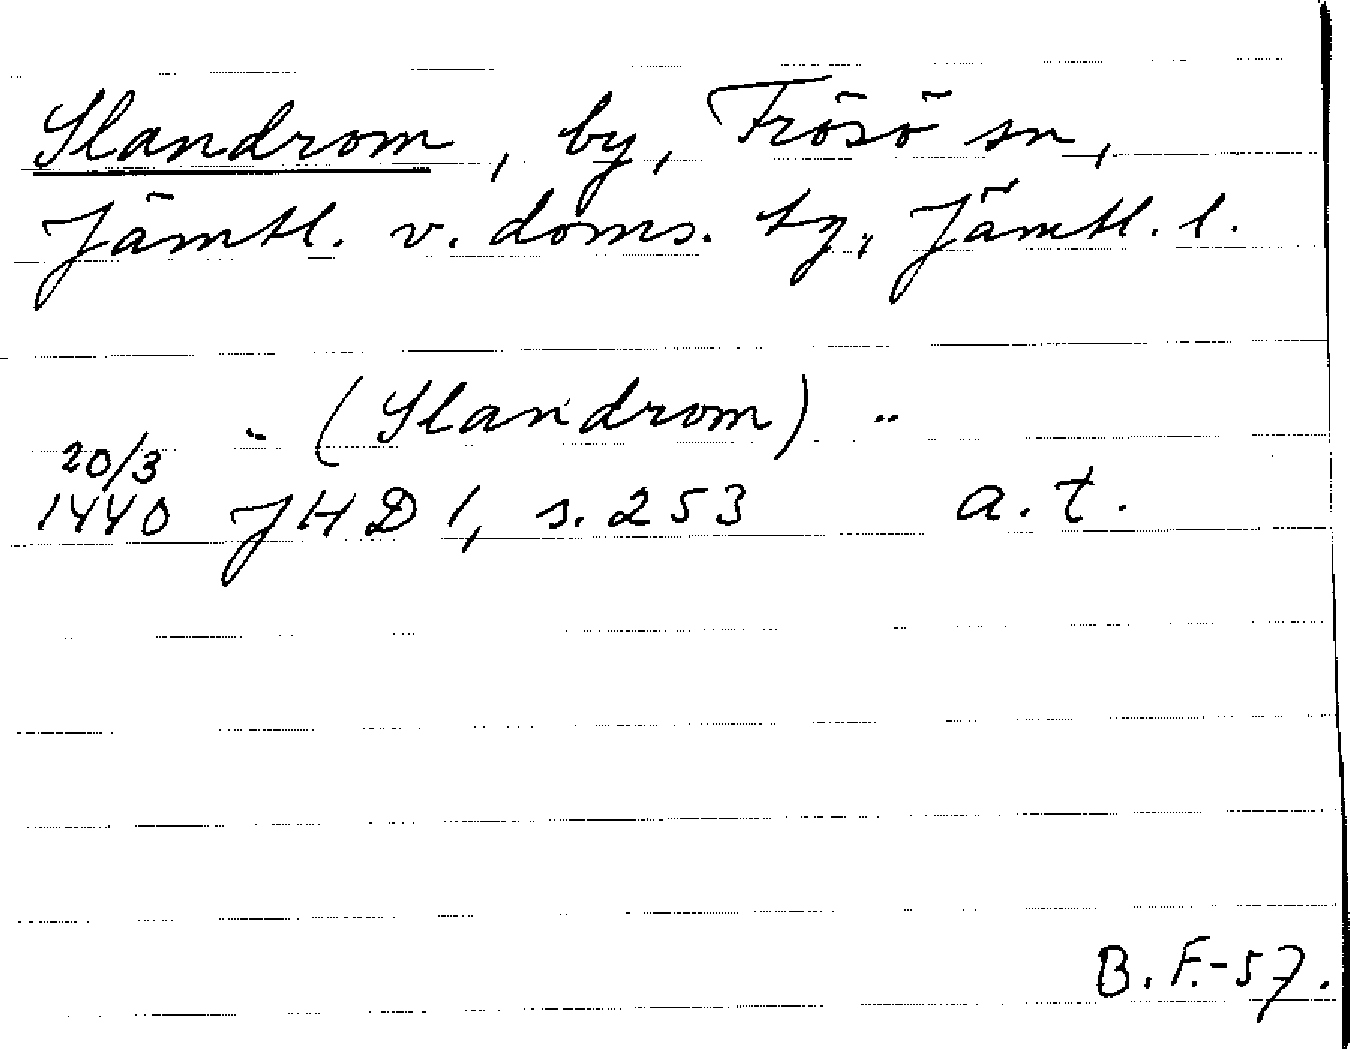 Slandrom, by, Frösö sn,
Jämtl. v. doms. tg, Jämtl. l.
" (Slandrom) "
20/3
1440 JHD 1, s. 253 a. t.
B. F. -57.